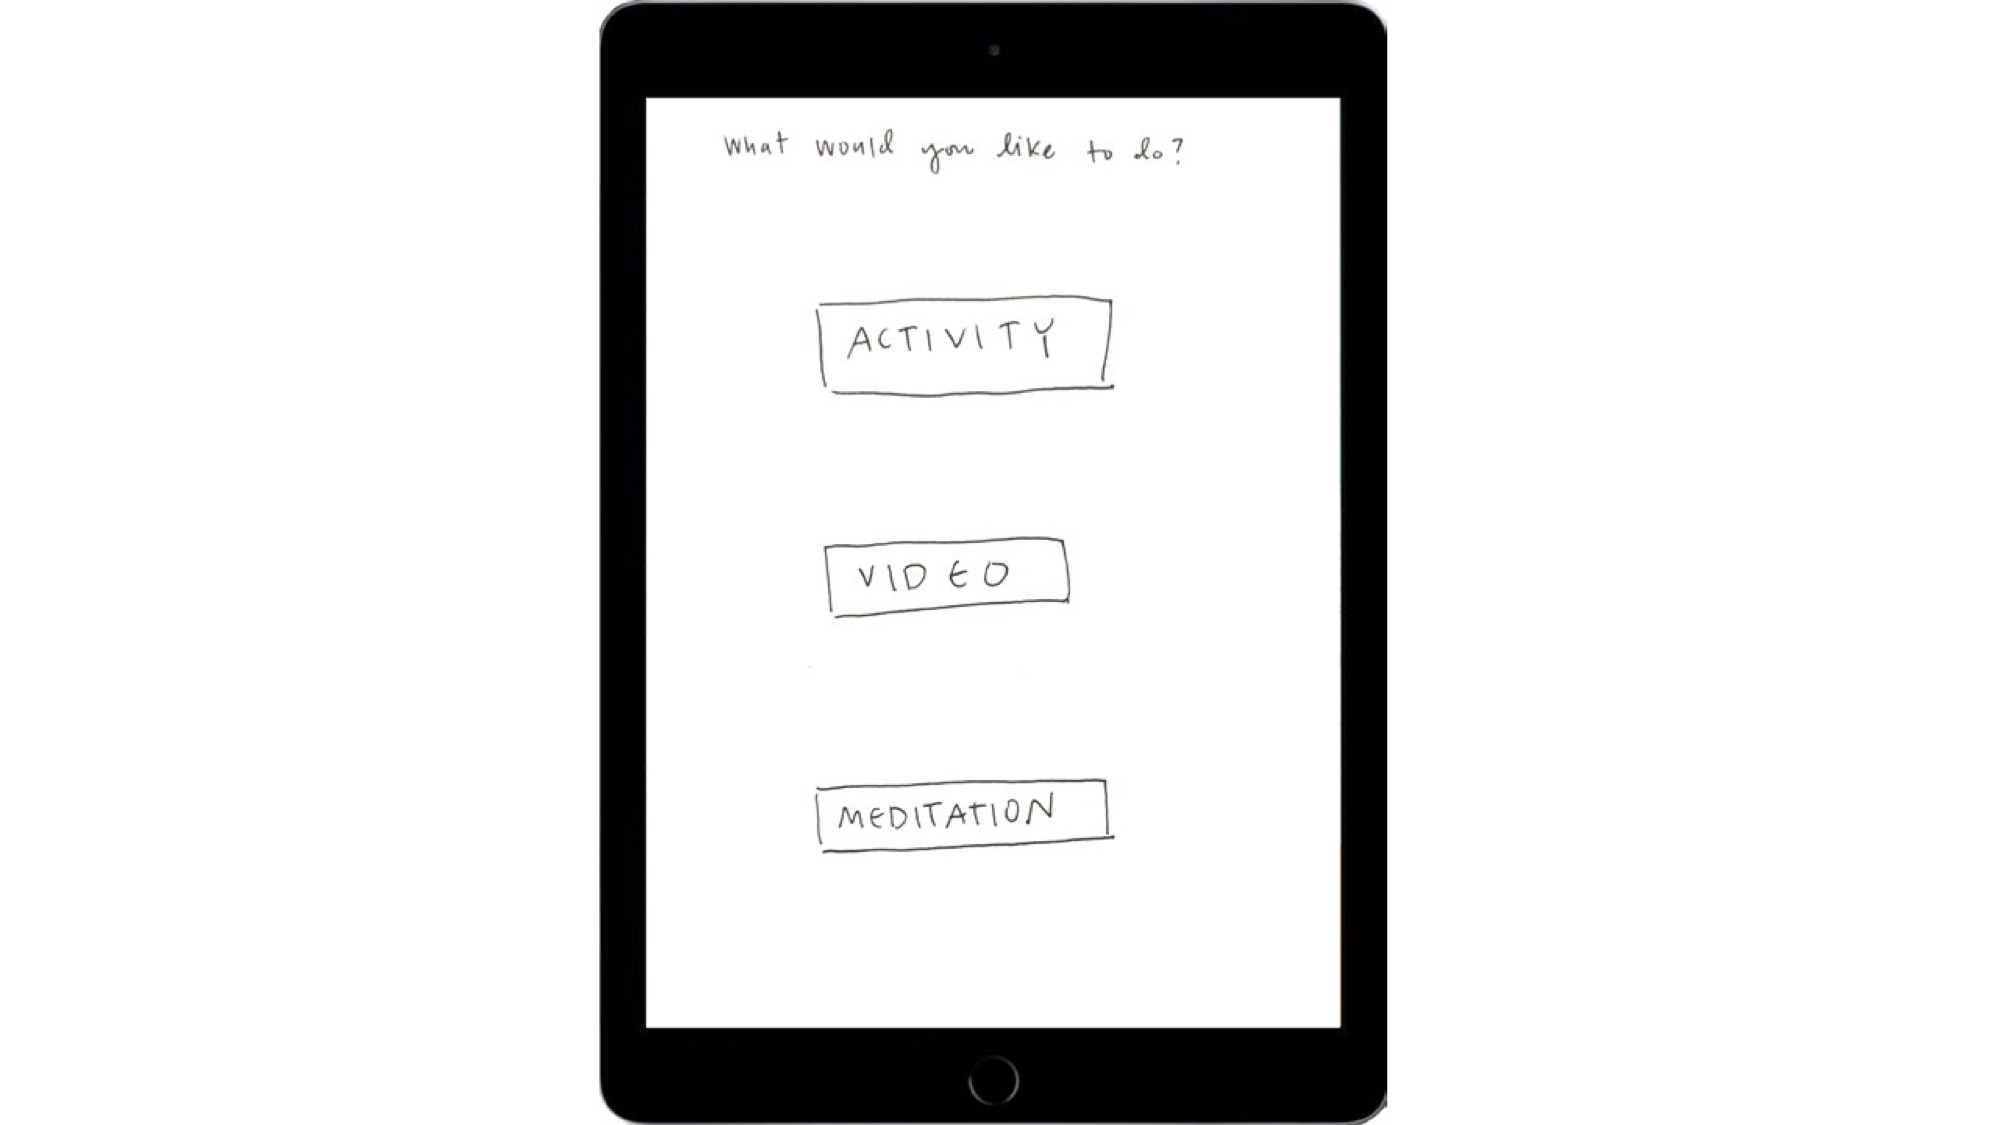 What would you like to do?
ACTIVITY
VIDEO
MEDITATION